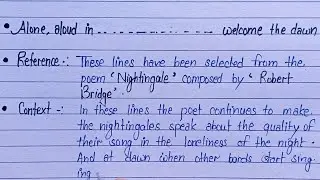 • Alone, aloud in ............ welcome the dawn
• Reference-: These lines have been selected from the
poem 'Nightingale' composed by 'Robert
Bridge'.
• Context -: In these lines the poet continues to make
the nightingales speak about the quality of
their song in the loneliness of the night.
And at dawn when other bards start sing
ing